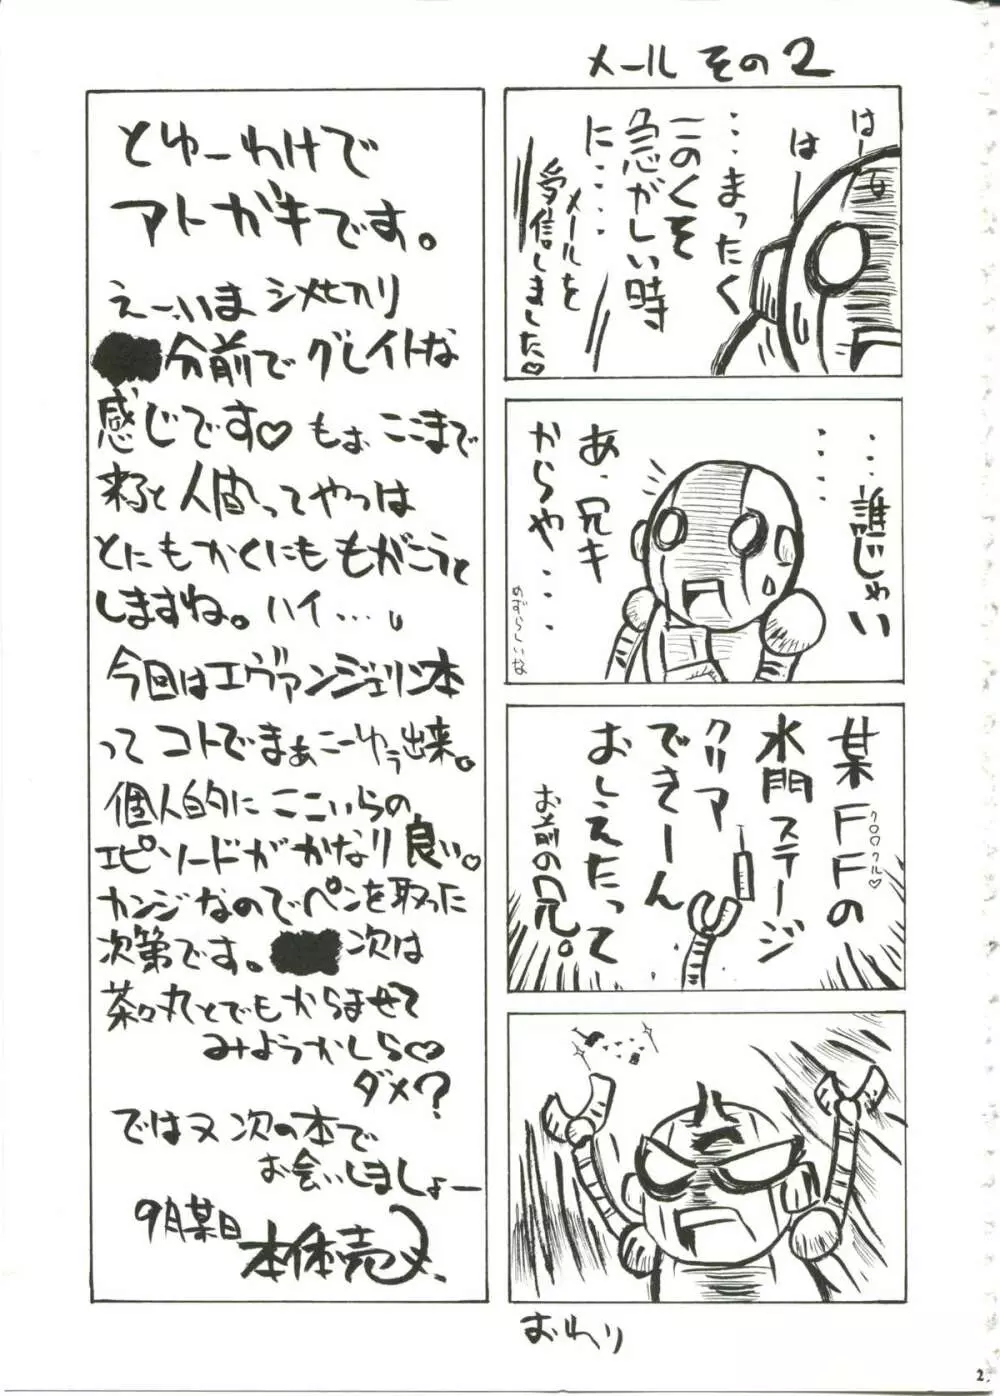 メール その2
はー
はー
…まったく
このくそ
急がしい時
に……
メールを
受信しました♡
……誰じゃい
……
あ、兄キ
からや…
めずらしいな
某FFの
クロ○クル♡
水門ステージ
クリア
できーん
おしえたって
お前の兄。
おわり
とゆーわけで
アトガキです。
えー、いま シメキリ
分前で グレイトな
感じです♡ もぉ ここまで
来ると 人間ってやつは
とにもかくにも もがこうと
しますね。ハイ…。
今回はエヴァンジェリン本
って コトで まぁこーゆう出来。
個人的に ここいらの
エピソードが かなり 良い。
カンジなので ペンを取った
次第です。 次は
茶々丸とでもからませて
みようかしら♡
ダメ?
ではヌ 次の本で
お会いしましょー
9月某日
本体売
2